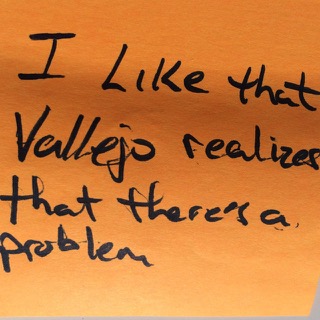 I Like that
Vallejo realizes
that there's a
problem